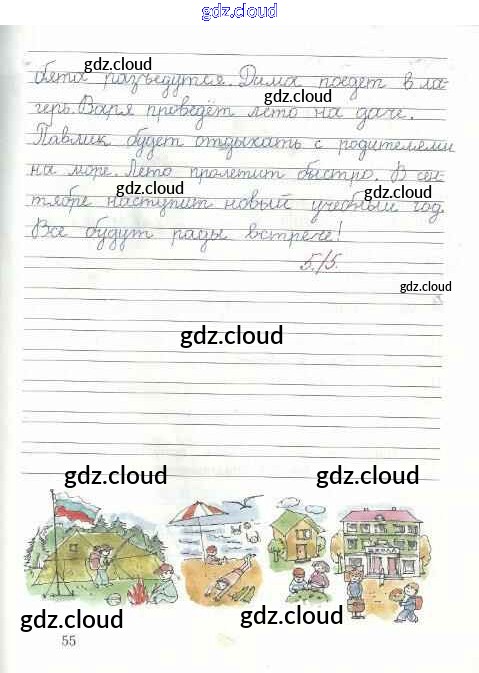 gdz.cloud
gdz.cloud
бята разъедутся. Дима поедет в ла-
gdz.cloud
герь. Варя проведёт лето на даче.
Павлик будет отдыхать с родителями
на море. Лето пролетит быстро. В сен-
gdz.cloud gdz.cloud
тябре наступит новый учебный год.
Все будут рады встрече!
5/5.
gdz.cloud
gdz.cloud
gdz.cloud gdz.cloud
ШКОЛА
gdz.cloud gdz.cloud
55